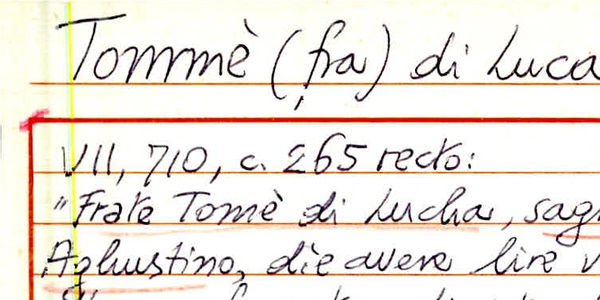 Tommè (fra) di Luca
VII, 710, c. 265 recto:
"Frate Tomè di Lucha, sag
Aghustino, die avere lire v